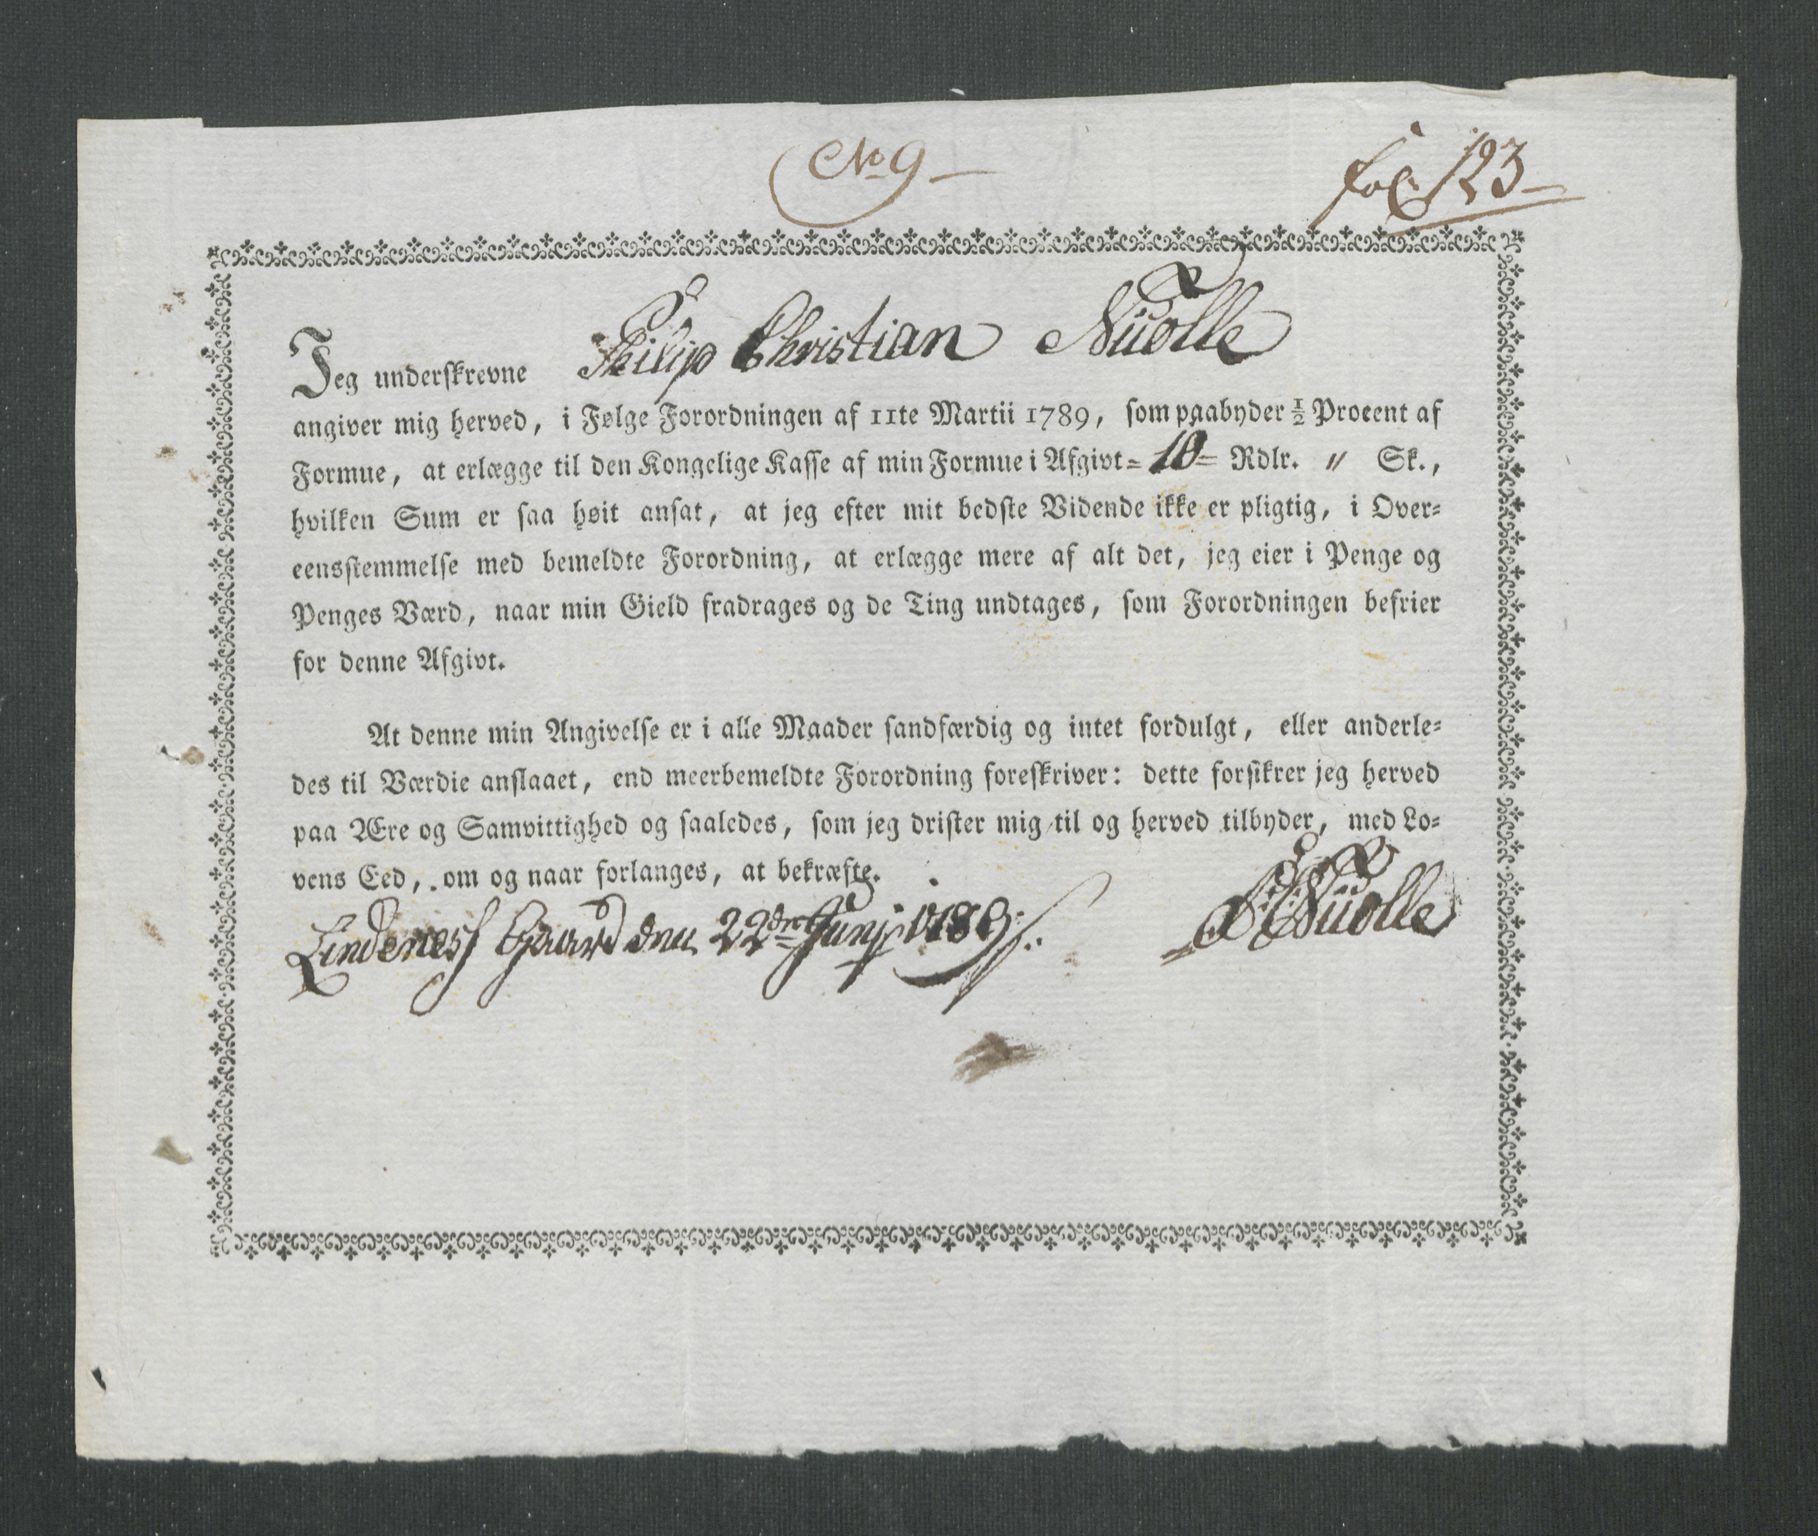 No 9
fol: 123
Jeg underskrevne Philip Christian Nüolle
angiver mig herved, i Følge Forordningen af 11te Martii 1789, som paabyder ½ Procent af
Formue, at erlægge til den Kongelige Kasse af min Formue i Afgivt = 10 = Rdlr. " Sk.,
hvilken Sum er saa høit ansat, at jeg efter mit bedste Vidende ikke er pligtig, i Over=
eensstemmelse med bemeldte Forordning, at erlægge mere af alt det, jeg eier i Penge og
Penges Værd, naar min Gield fradrages og de Ting undtages, som Forordningen befrier
for denne Afgivt.
At denne min Angivelse er i alle Maader sandfærdig og intet fordulgt, eller anderle=
des til Værdie anslaaet, end meerbemeldte Forordning foreskriver: dette forsikrer jeg herved
paa Ære og Samvittighed og saaledes, som jeg drister mig til og herved tilbyder, med Lo=
vens Eed, om og naar forlanges, at bekræfte.
Lindeness Gaard den 22de Junj 1789
P: C: Nüolle